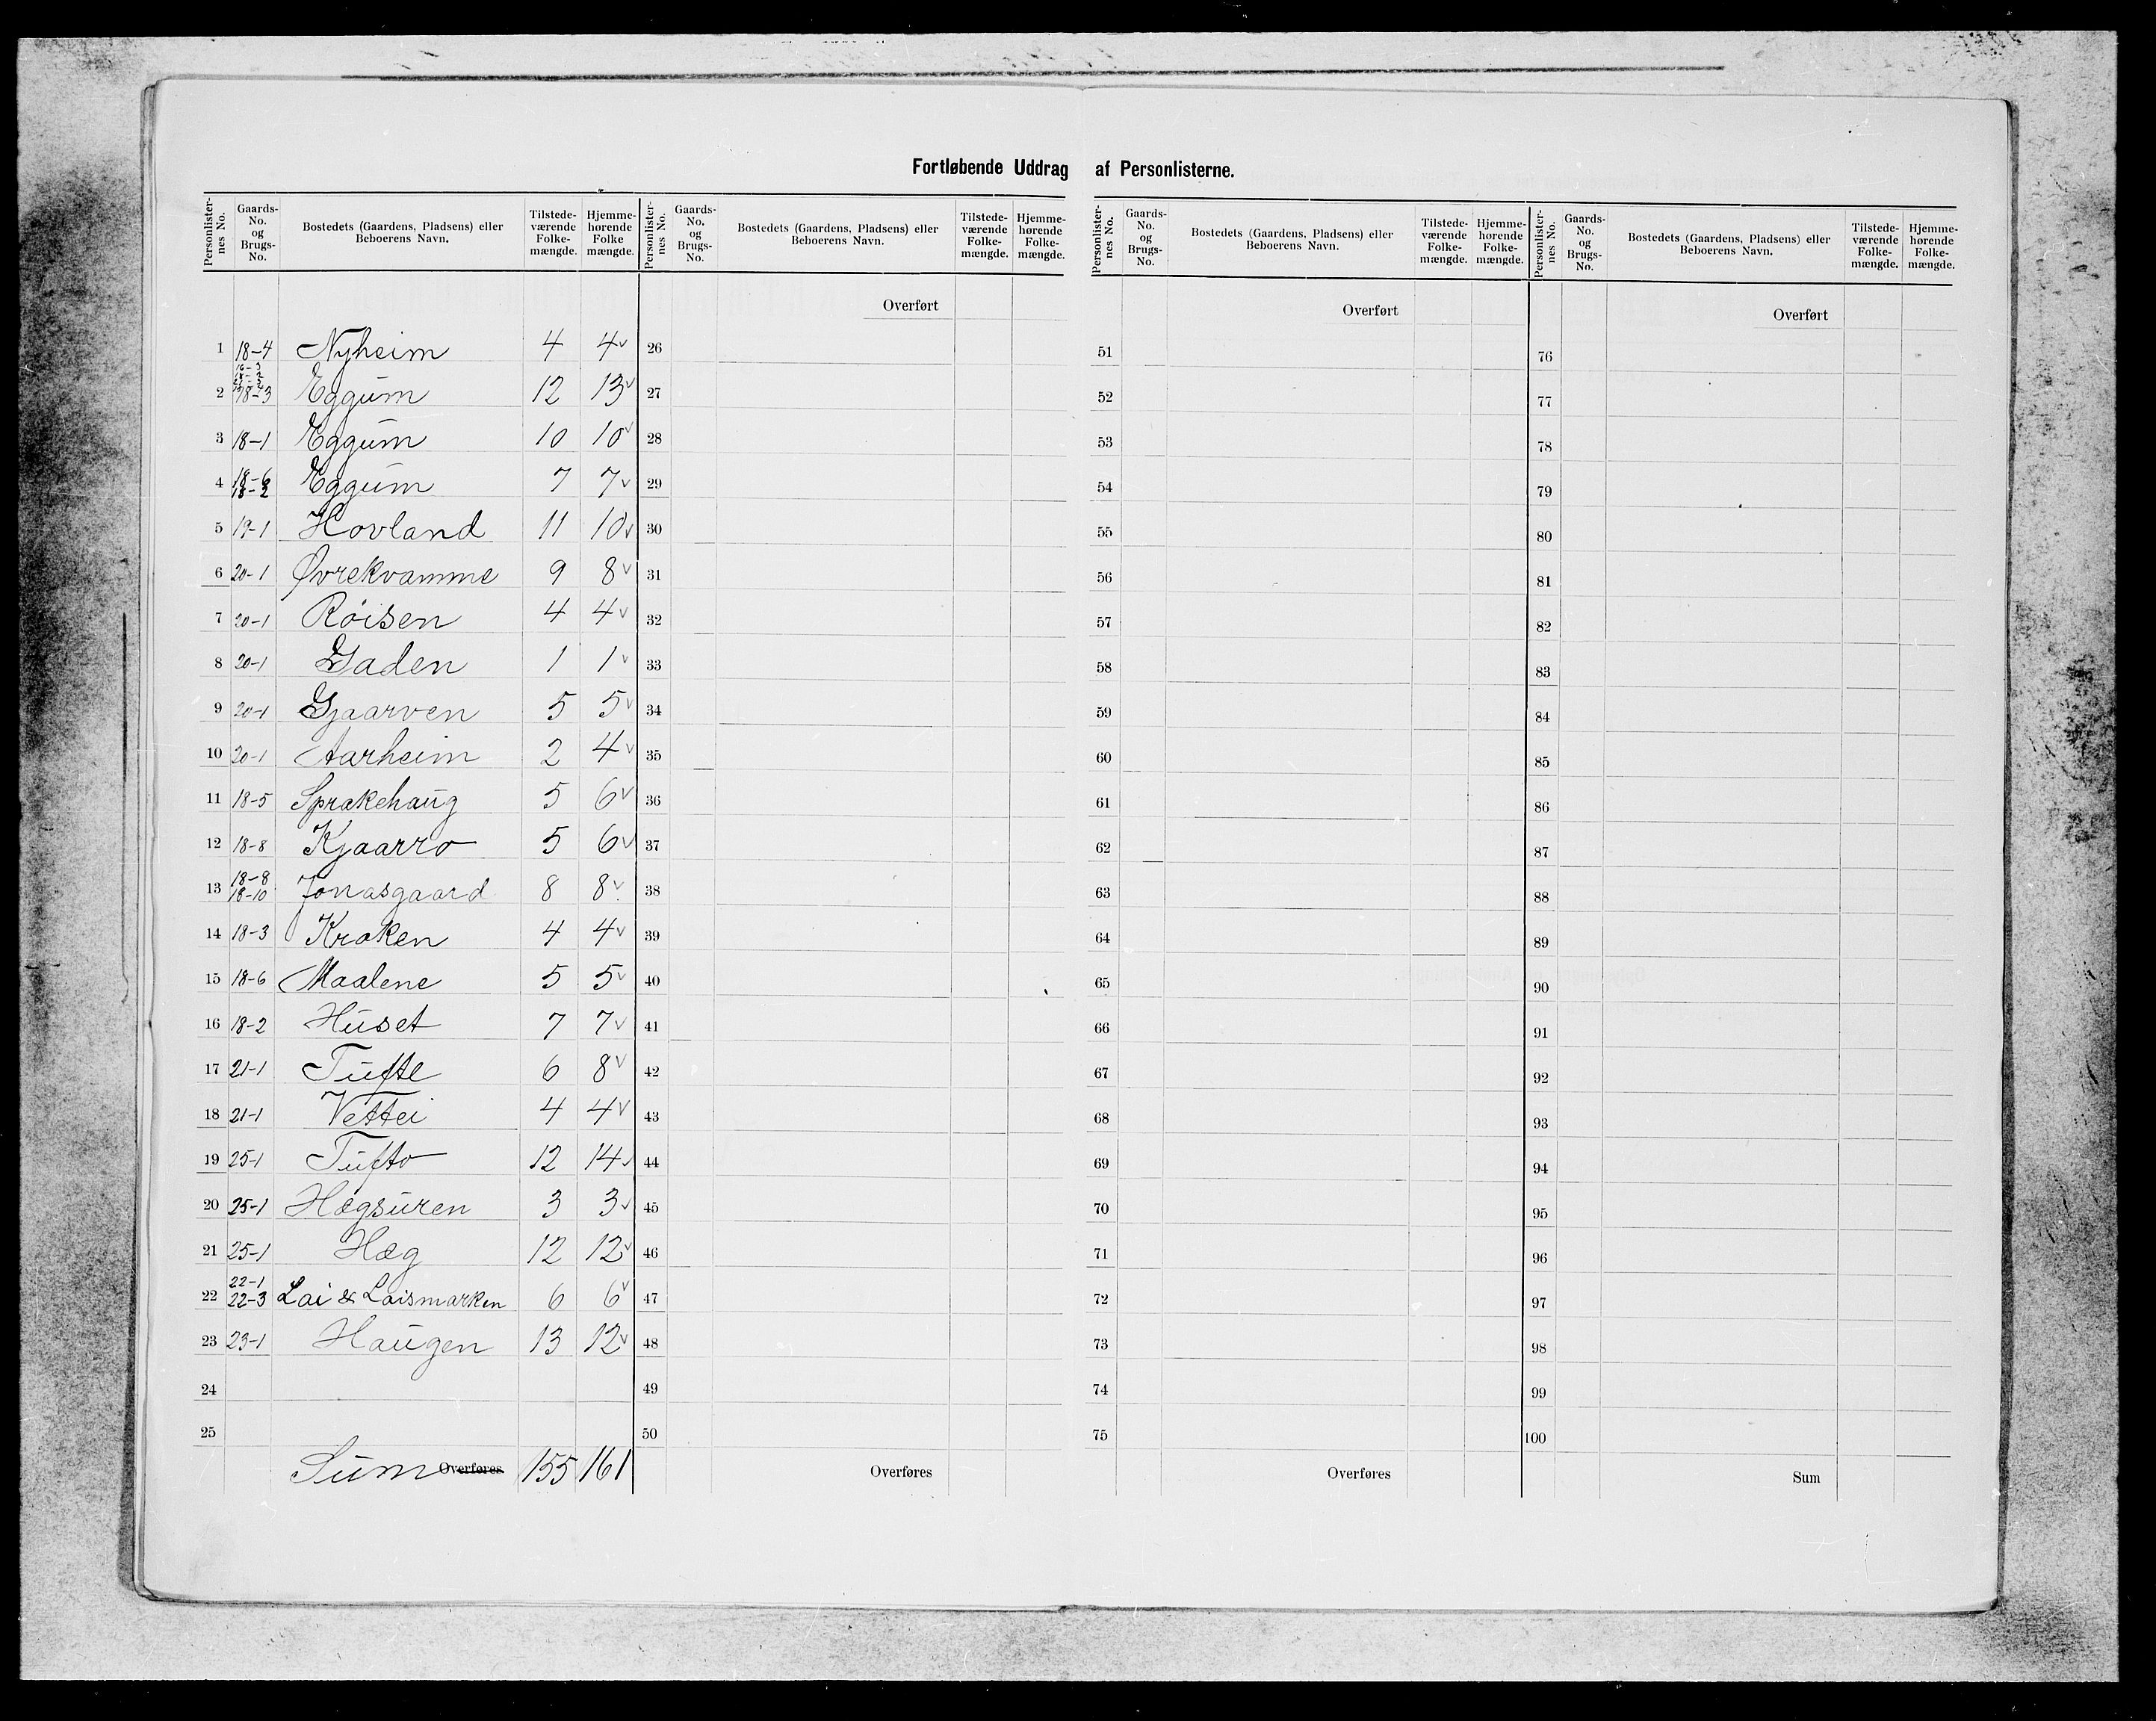 Fortløbende Uddrag af Personlisterne.
Personlister-nes No. | Gaards-No. og Brugs-No. | Bostedets (Gaardens, Pladsens) eller Beboerens Navn. | Tilstede-værende Folke-mængde. | Hjemme-hørende Folke mængde. | Personlister-nes No. | Gaards-No. og Brugs-No. | Bostedets (Gaardens, Pladsens) eller Beboerens Navn. | Tilstede-værende Folke-mængde. | Hjemme-hørende Folke-mængde. | Personlister-nes No. | Gaards-No. og Brugs-No. | Bostedets (Gaardens, Pladsens) eller Beboerens Navn. | Tilstede-værende Folke-mængde. | Hjemme-hørende Folke-mængde. | Personlister-nes No. | Gaards-No. og Brugs-No. | Bostedets (Gaardens, Pladsens) eller Beboerens Navn. | Tilstede-værende Folke-mængde. | Hjemme-hørende Folke-mængde.
Overført Overført Overført
1 18-4 Nyheim 4 4 v 26 51 76
2 18-3 Eggum 12 13 v 27 52 77
3 18-1 Eggum 10 10 v 28 53 78
4 18-6 18-2 Eggum 7 7 v 29 54 79
5 19-1 Hovland 11 10 v 30 55 80
6 20-1 Øvrekvamme 9 8 v 31 56 81
7 20-1 Röisen 4 4 v 32 57 82
8 20-1 Gaden 1 1 v 33 58 83
9 20-1 Gjaarven 5 5 v 34 59 84
10 20-1 Aarheim 2 4 v 35 60 85
11 18-5 Sprakehaug 5 6 v 36 61 86
12 18-8 Kjaarro 5 6 v 37 62 87
13 18-8 18-10 Jonasgaard 8 8 v 38 63 88
14 18-3 Kraken 4 4 v 39 64 89
15 18-6 Maalene 5 5 v 40 65 90
16 18-2 Huset 7 7 v 41 66 91
17 21-1 Tufte 6 8 v 42 67 92
18 21-1 Vettei 4 4 v 43 68 93
19 25-1 Tufto 12 14 v 44 69 94
20 25-1 Hægsuren 3 3 v 45 70 95
21 25-1 Hæg 12 12 v 46 71 96
22 22-1 22-3 Lai & Laismarken 6 6 v 47 72 97
23 23-1 Haugen 13 12 v 48 73 98
24 49 74 99
25 50 75 100
Sum Overføres 155 161 Overføres Overføres Sum